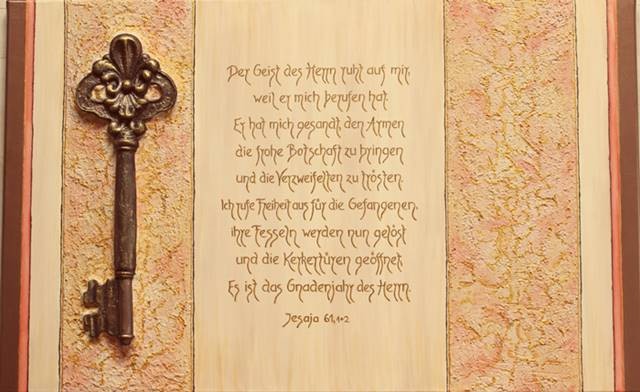 Der Geist des Herrn ruht auf mir,
weil er mich berufen hat.
Er hat mich gesandt, den Armen
die frohe Botschaft zu bringen
und die Verzweifelten zu trösten.
Ich rufe Freiheit aus für die Gefangenen,
ihre Fesseln werden nun gelöst
und die Kerkertüren geöffnet.
Es ist das Gnadenjahr des Herrn.
Jesaja 61,1+2